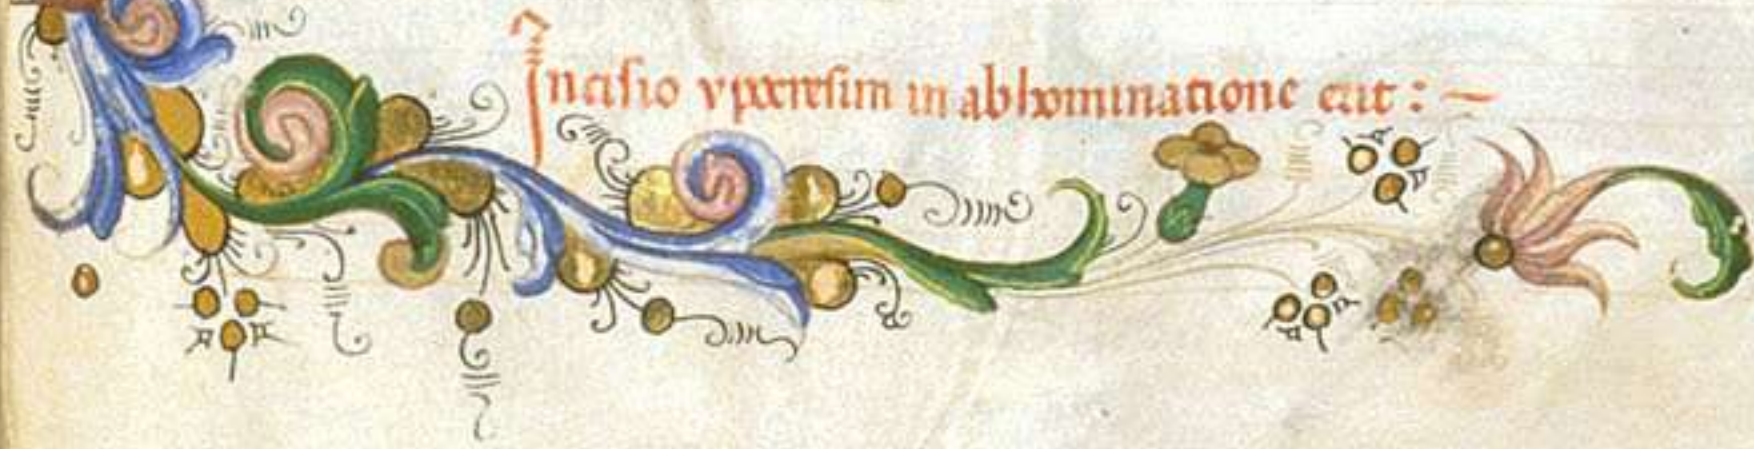 Incisio vpocresim in abhominatione erit : ~